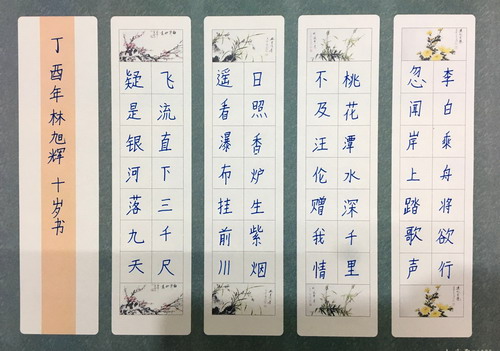 李白乘舟将欲行
忽闻岸上踏歌声
桃花潭水深千里
不及汪伦赠我情
日照香炉生紫烟
遥看瀑布挂前川
飞流直下三千尺
疑是银河落九天
丁酉年林旭辉十岁书